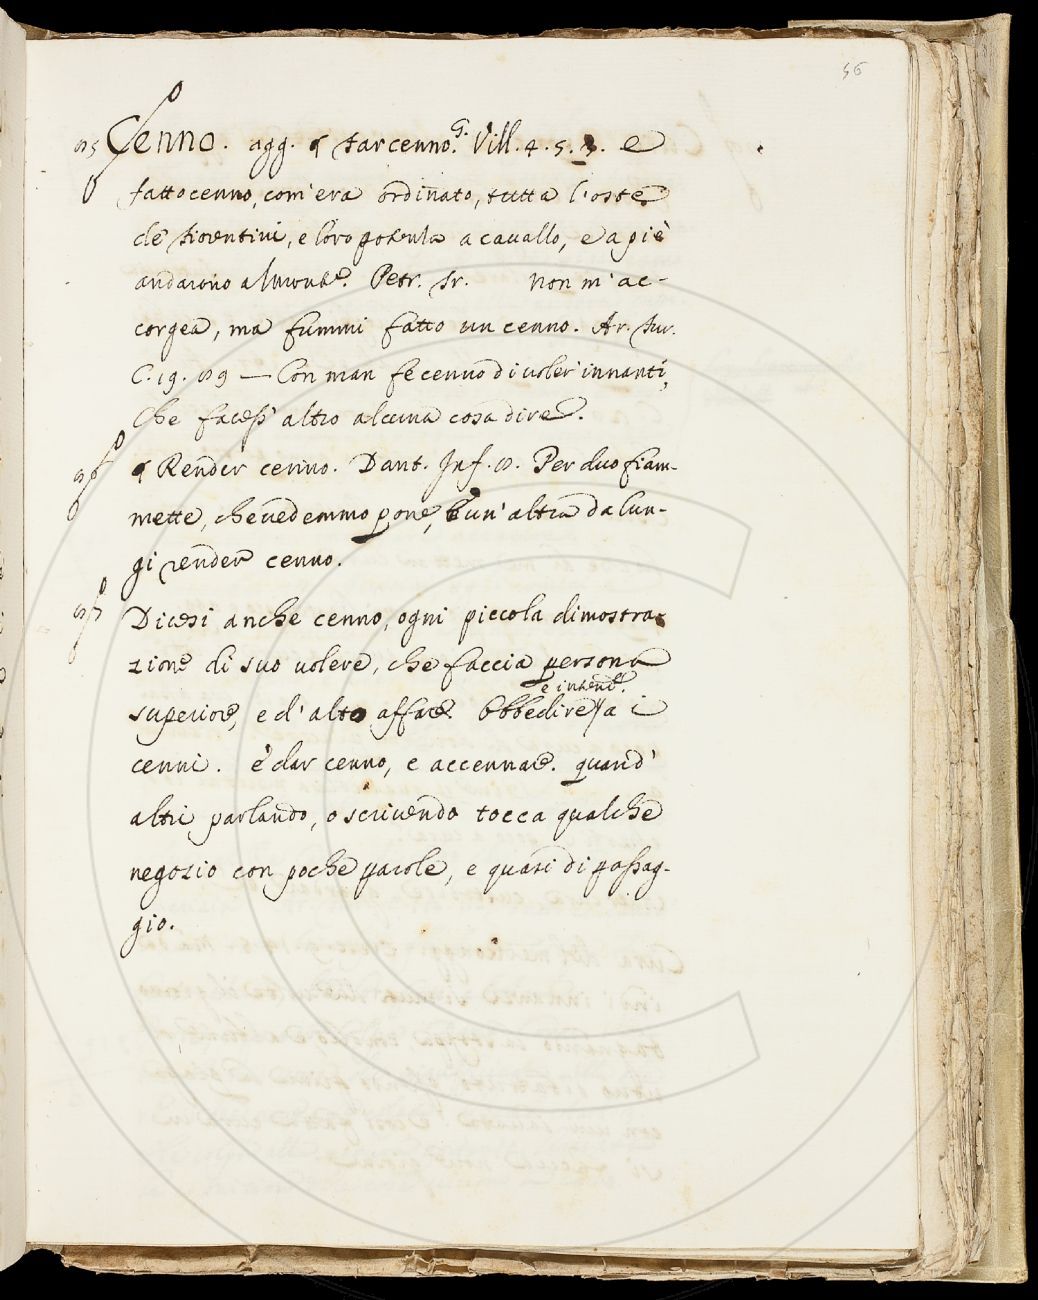 56
Cenno. agg. ¶ Far cenno. G. Vill. 4. 5. 3. e
fatto cenno, com'era ordinato, tutta l'oste
de' Fiorentini, e loro potenza a cavallo, e a piè
andarono al monte. Petr. Fr. Non m'ac-
corgea, ma fummi fatto un cenno. Ar. Fur.
C. 19. 89 — Con man fe cenno di voler innanti,
Che facess' altro alcuna cosa dire.
¶ Render cenno. Dant. Inf. 8. Per duo fiam-
mette, che vedemmo pone, E un' altra da lun-
gi render cenno.
Dicesi anche cenno, ogni piccola dimostra-
zione di suo volere, che faccia persona
superiore, e d'alto affare. Obbedire a i
cenni. è dar cenno, e accennare. quand'
altri parlando, o scrivendo tocca qualche
negozio con poche parole, e quasi di passag-
gio.